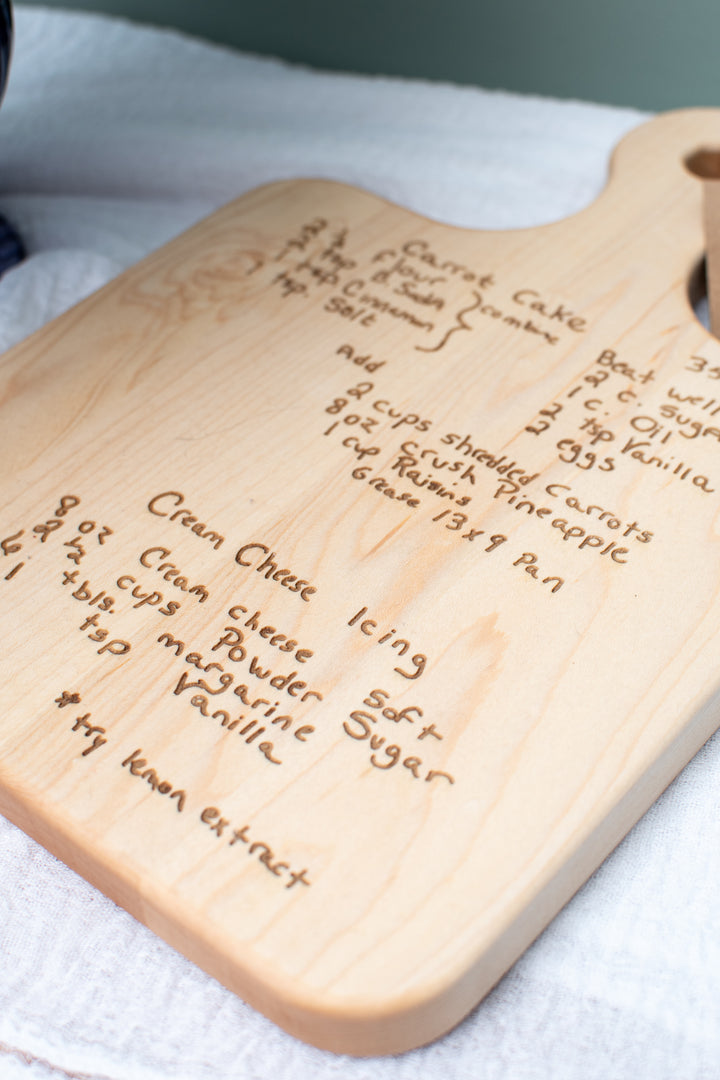 Carrot Cake
flour
tsp B. Soda
tsp Cinnamon
tsp. Salt
combine
35
Beat well
2 c. Suga
1 c. Oil
2 tsp Vanilla
2 eggs
Add
2 cups shredded Carrots
8 oz crush Pineapple
1 cup Raisins
Grease 13x9 Pan
Cream Cheese Icing
8 oz Cream cheese soft
2 ½ cups Powder Sugar
6 tbls. margarine
1 tsp Vanilla
* try lemon extract